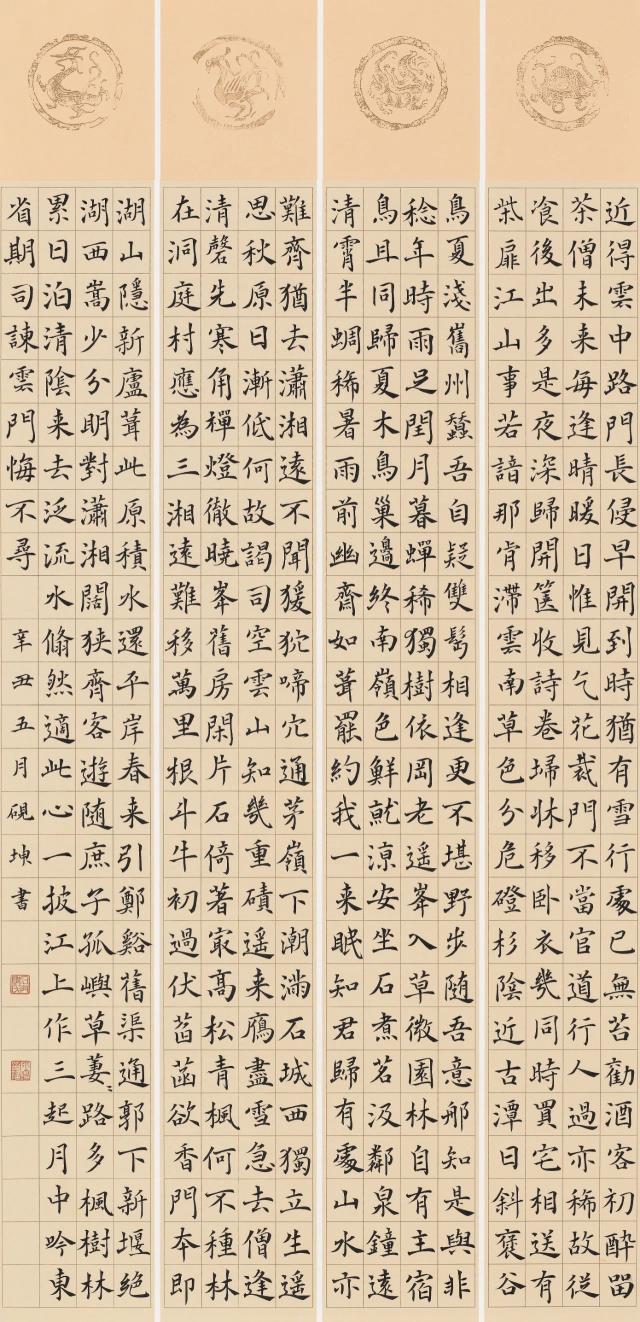 近得雲中路門長侵早開到時猶有雪行處已無苔勸酒客初醉留
茶僧未来每逢晴暖日惟見乞花裁門不當官道行人過亦稀故従
飡後出多是夜深歸開篋收詩卷埽牀移卧衣幾同時買宅相送有
柴扉江山事若諳那肯滯雲南草色分危磴杉陰近古潭日斜褒谷
鳥夏淺巂州蠶吾自疑雙髩相逢更不堪野步随吾意那知是與非
稔年時雨足閏月暮蟬稀獨樹依岡老遥峯入草微園林自有主宿
鳥且同歸夏木鳥巢邉終南嶺色鮮就涼安坐石煮茗汲鄰泉鐘遠
清霄半蜩稀暑雨前幽齋如葺罷約我一来眠知君歸有處山水亦
難齊猶去瀟湘遠不聞猨狖啼穴通茅嶺下潮滿石城西獨立生遥
思秋原日漸低何故謁司空雲山知幾重磧遥来鴈盡雪急去僧逢
清磬先寒角禪燈徹曉峯舊房閑片石倚著冣高松青楓何不種林
在洞庭村應為三湘遠難移萬里根斗牛初過伏萏菡欲香門夲即
湖山隱新廬葺此原積水還平岸春来引鄭谿舊渠通郭下新堰絶
湖西嵩少分明對瀟湘闊狹齊客遊随庶子孤嶼草萋〻路多楓樹林
累日泊清陰来去泛流水翛然適此心一披江上作三起月中吟東
省期司諫雲門悔不尋
辛丑五月硯坤書